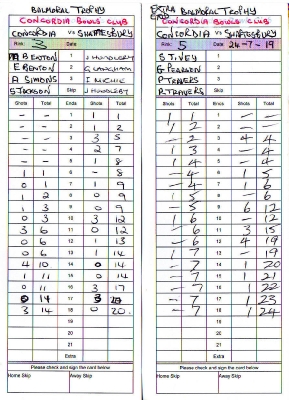 BALMORAL TROPHY
CONCORDIA BOWLS CLUB
CONCORDIA vs SHAFTESBURY
Rink: 3 Date
A BENTON
E BENTON
A SIMONS
Shots Total Ends Shots Total
- - 1 1 1
- - 2 1 2
- - 3 3 5
- - 4 2 7
- - 5 1 8
1 1 6 - 8
0 1 7 1 9
1 2 8 0 9
1 3 9 0 9
0 3 10 3 12
3 6 11 0 12
0 6 12 1 13
0 6 13 1 14
4 10 14 0 14
1 11 15 0 14
0 11 16 3 17
0 14 17 3 20
3 14 18 0 20
19
20
21
Extra
Please check and sign the card below
Home Skip Away Skip
EXTRA END BALMORAL TROPHY
CONCORDIA BOWLS CLUB
CONCORDIA vs SHAFTESBURY
Rink: 5 Date 24-7-19
G PEARSON
P TRAVERS
R. TRAVERS Skip
Shots Total Ends Shots Total
1 1 1 - -
1 2 2 - -
- 2 3 4 4
1 3 4 - 4
1 4 5 - 4
- 4 6 1 5
- 4 7 1 6
1 5 8 - 6
- 5 9 6 12
1 6 10 - 12
- 6 11 3 15
- 6 12 4 19
1 7 13 - 19
- 7 14 1 20
- 7 15 1 21
- 7 16 1 22
- 7 17 1 23
- 7 18 1 24
19
20
21
Extra
Please check and sign the card below
Home Skip Away Skip